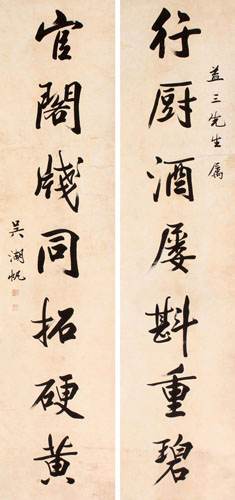 行厨酒屡斟重碧
益三先生属
官閣牋同拓硬黄
吴湖帆